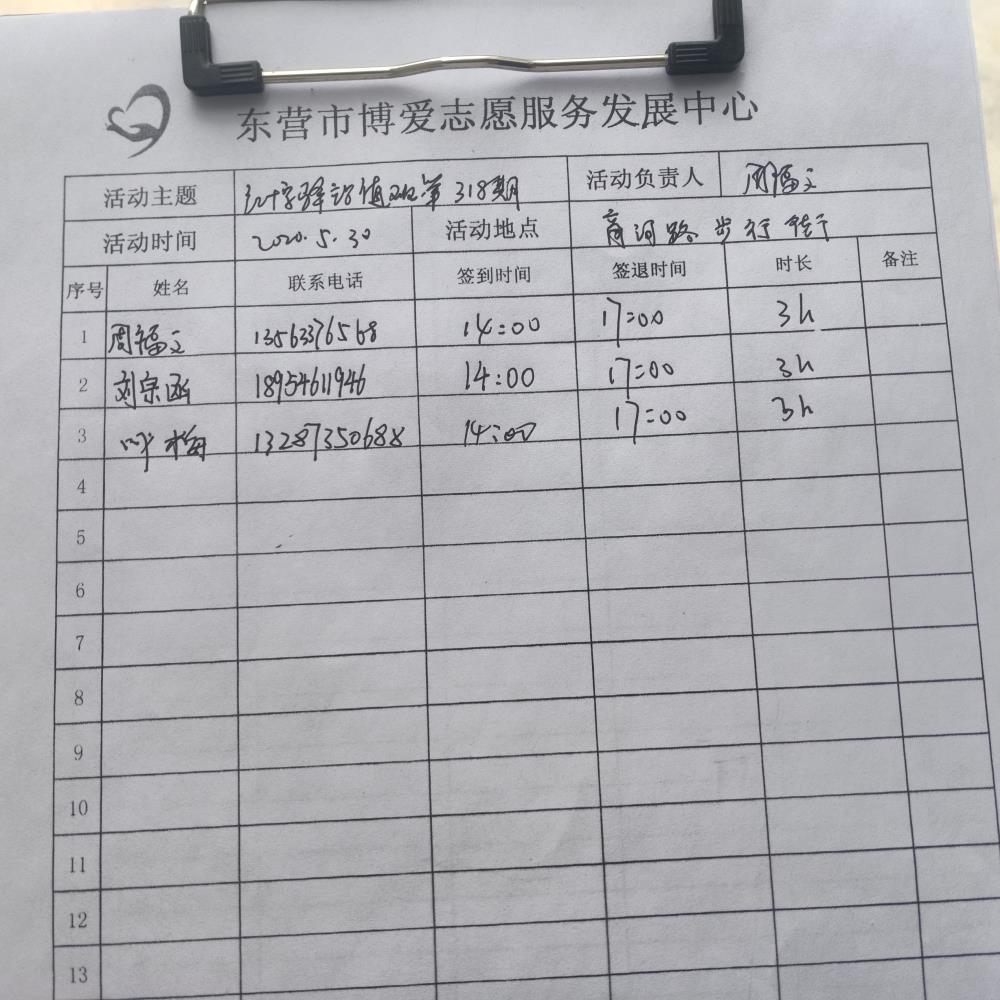 东营市博爱志愿服务发展中心
活动主题 红十字驿站值班第318期 活动负责人 周福文
活动时间 2020.5.30 活动地点 商河路步行街
序号 姓名 联系电话 签到时间 签退时间 时长 备注
1 周福文 13563376568 14:00 17:00 3h
2 刘宗函 18954611946 14:00 17:00 3h
3 叶梅 13287350688 14:00 17:00 3h
4
5
6
7
8
9
10
11
12
13